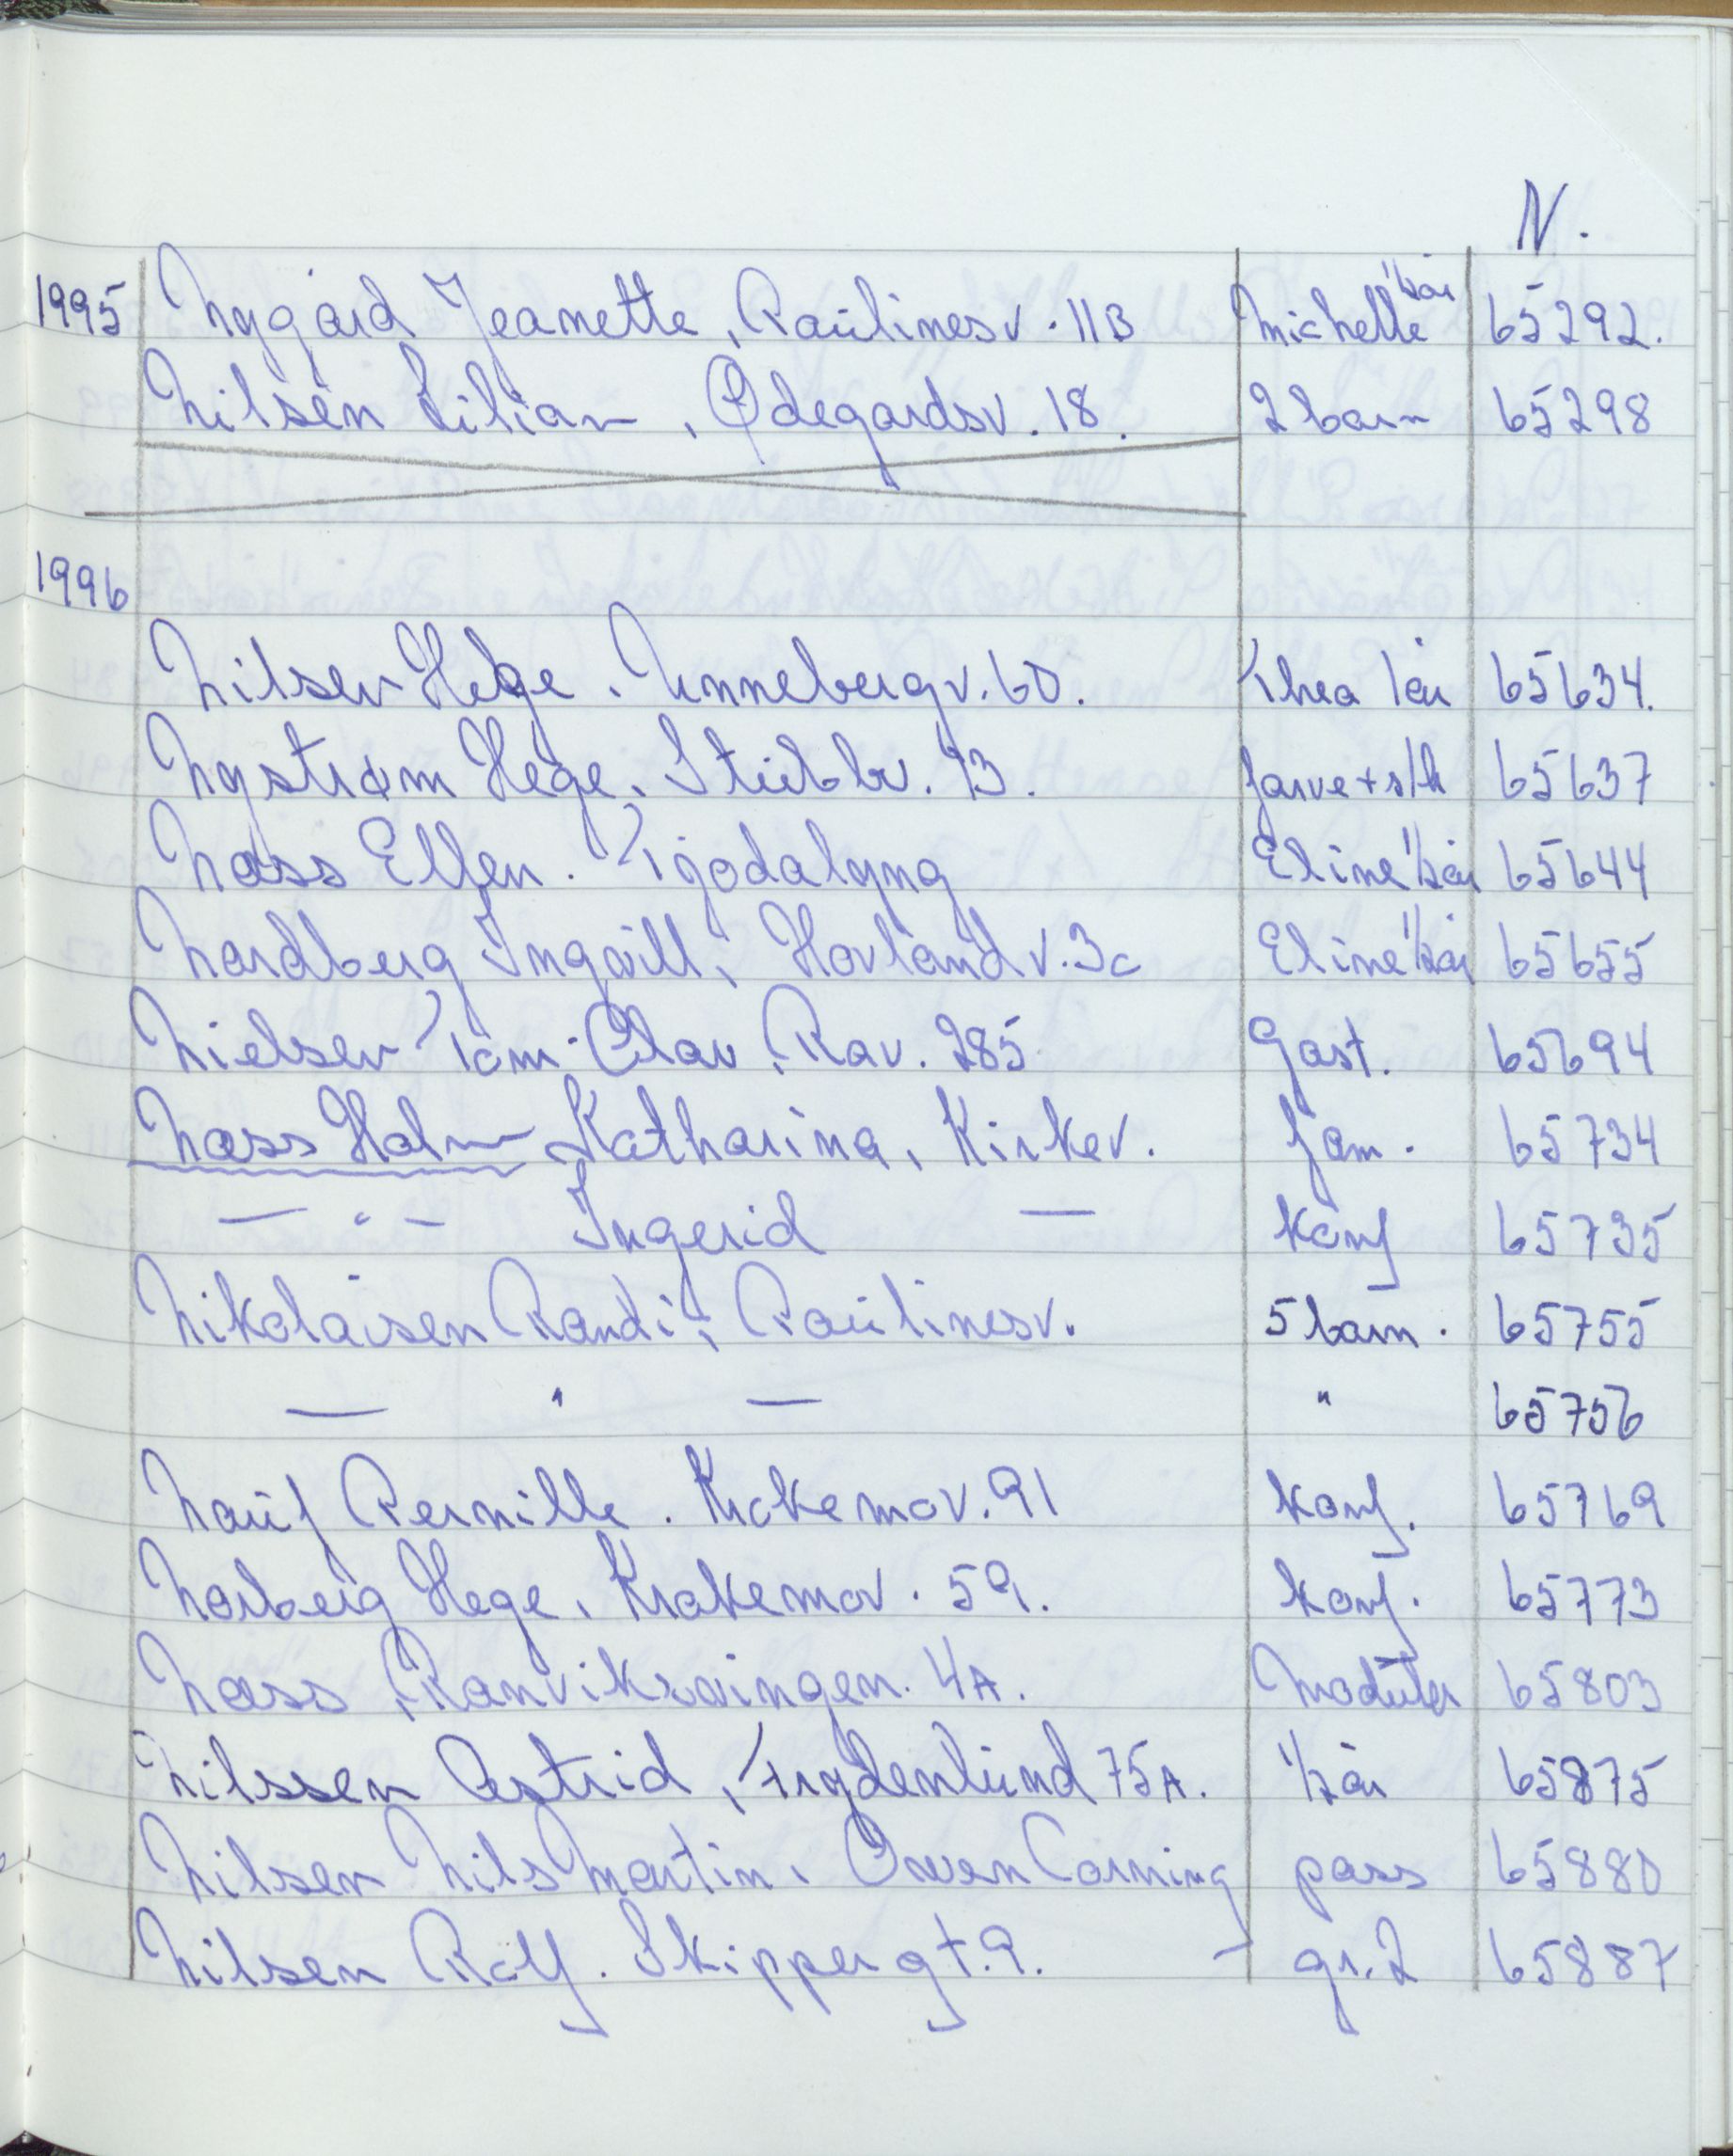 N.
1995 Nygård Jeanette, Paulinesv. 11B Michelle 1/2 år 65292.
Nilsen Lilian, Ødegårdsv. 18. 2 barn 65298
1996
Nilsen Hege. Unnebergv. 60. Thea 1 år 65634.
Nystrøm Hege. Stubbv. 93. farve+s/h 65637
Næss Ellen. Tjodalyng Eline 1/2 år 65644
Nordberg Ingvill, Hovlandv. 3c Eline 1/2 år 65655
Nielsen Tom-Olav, Rav. 285 Gast. 65694
Næss Holm Katharina, Kirkev. fam. 65734
— " — Ingerid — konf 65735
Nikolaisen Randi, Paulinesv. 5 barn. 65755
— " — " 65756
Nauf Pernille. Krokemov. 91 konf. 65769
Norberg Hege, Krokemov. 59. konf. 65773
Næss, Ranviksvingen. 4A. 65803
Nilssen Astrid, Frydenlund 75A. 1/2 år 65875
Nilsen Nils Martin, Owen Corning pass 65880
Nilsen Rolf. Skippergt. 9. – gr. 2 65887